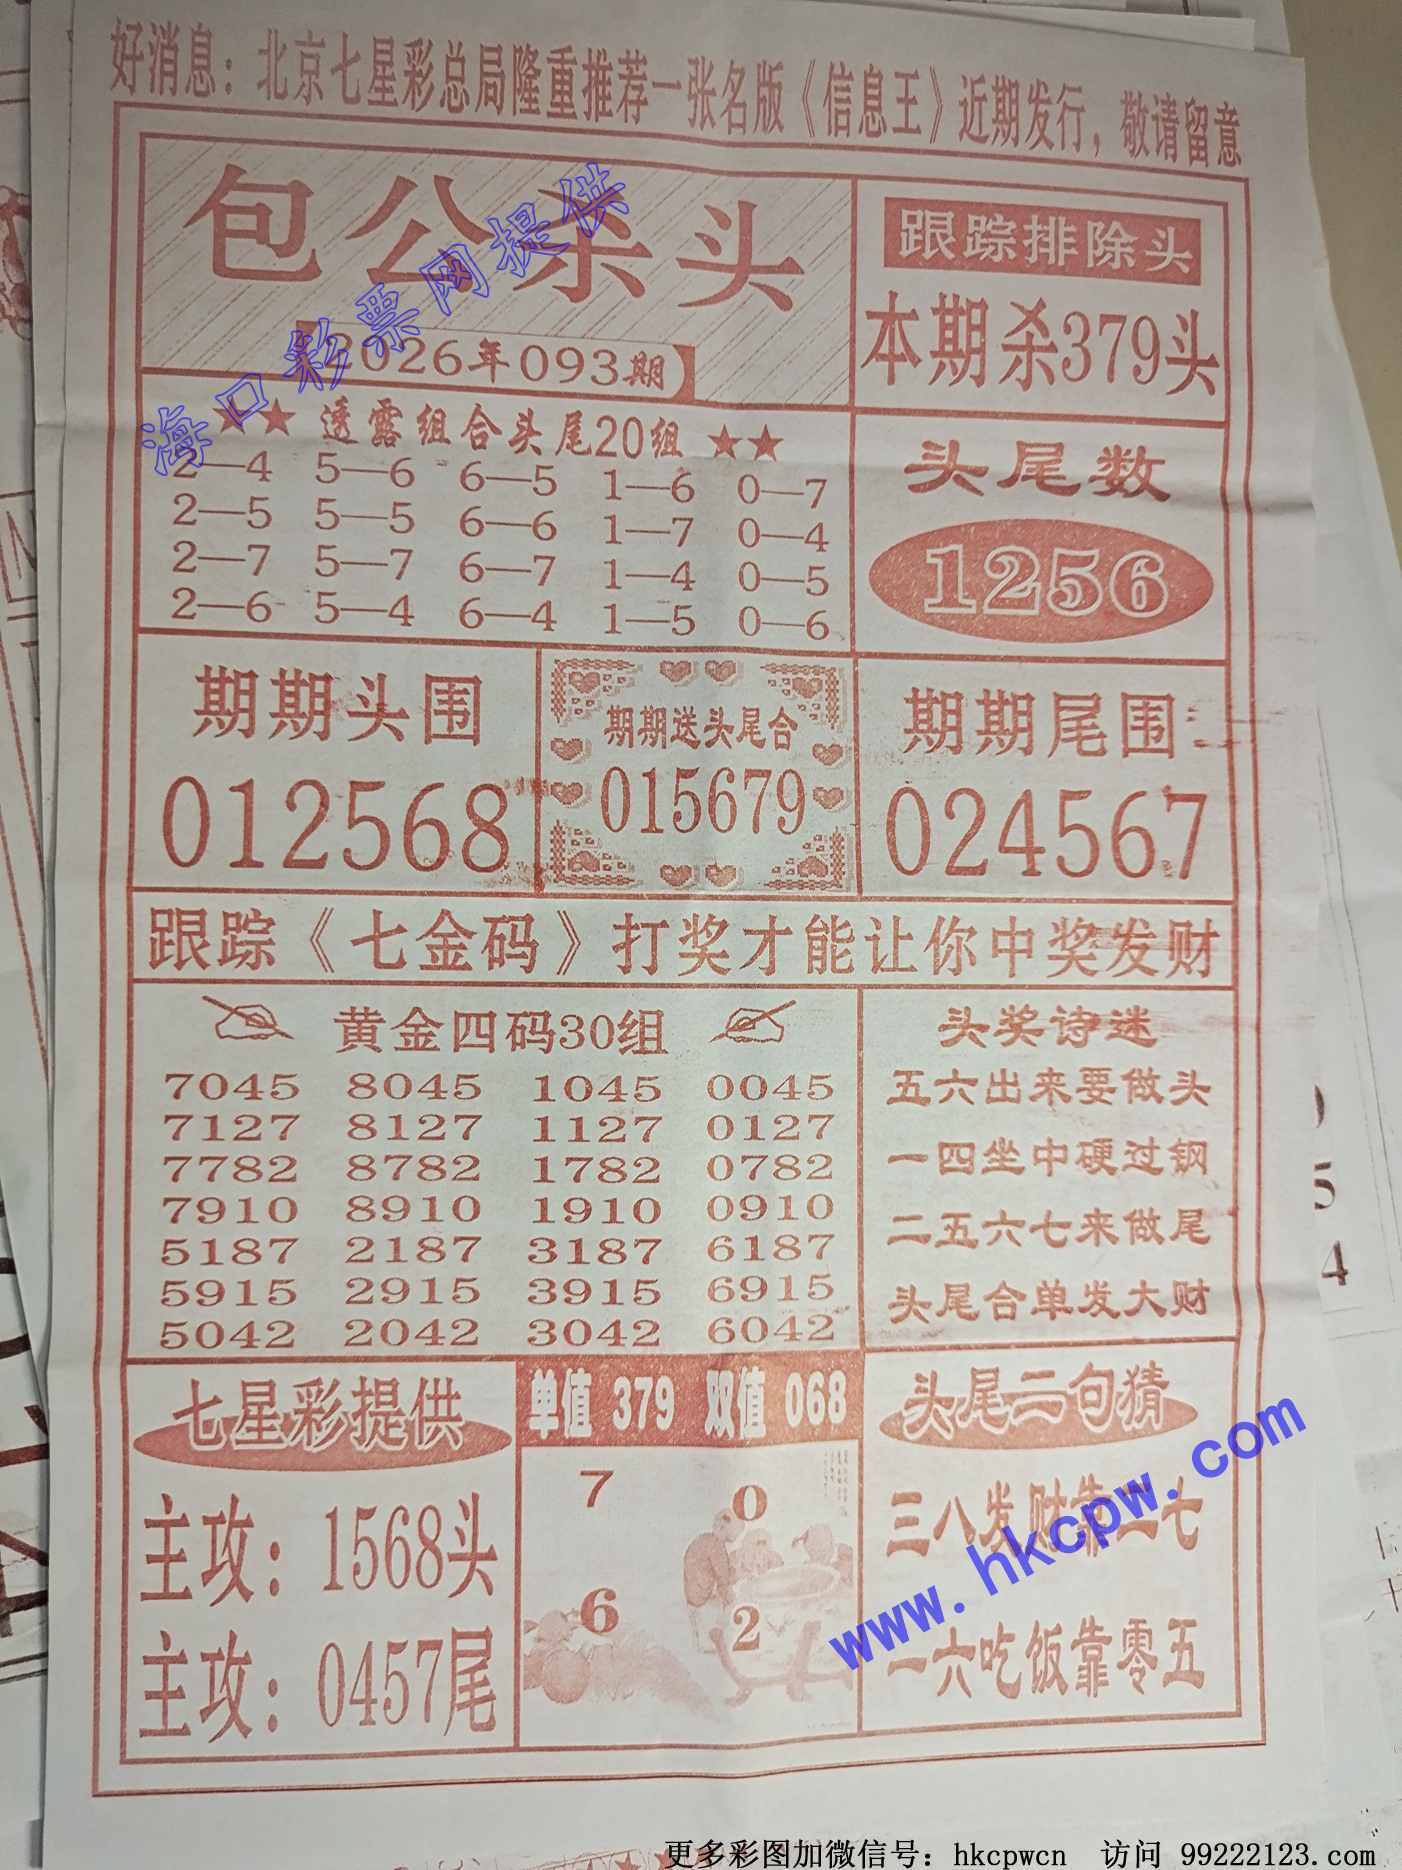 好消息：北京七星彩总局隆重推荐一张名版《信息王》近期发行，敬请留意
包公杀头
2026年093期
海口彩票网提供
跟踪排除头
本期杀379头
★★ 透露组合头尾20组 ★★
2—4 5—6 6—5 1—6 0—7
2—5 5—5 6—6 1—7 0—4
2—7 5—7 6—7 1—4 0—5
2—6 5—4 6—4 1—5 0—6
头尾数
1256
期期头围
012568
期期送头尾合
015679
期期尾围
024567
跟踪《七金码》打奖才能让你中奖发财
黄金四码30组
7045 8045 1045 0045
7127 8127 1127 0127
7782 8782 1782 0782
7910 8910 1910 0910
5187 2187 3187 6187
5915 2915 3915 6915
5042 2042 3042 6042
头奖诗迷
五六出来要做头
一四坐中硬过钢
二五六七来做尾
头尾合单发大财
七星彩提供
主攻：1568头
主攻：0457尾
单值 379 双值 068
7 0
6 2
头尾二句猜
三八发财靠二七
一六吃饭靠零五
www.hkcpw.com
更多彩图加微信号：hkcpwcn 访问 99222123.com